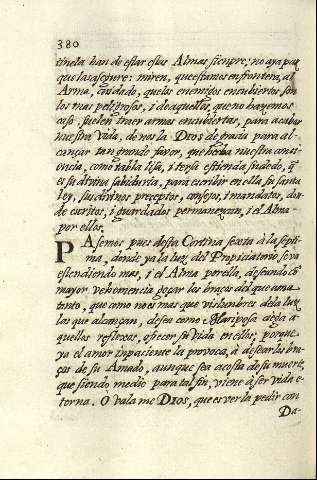 380
tinela han de estar estas Almas siempre; no aya paz
que las asegure: miren, que estamos en frontera, al
Arma, cuidado, que los enemigos encubiertos son
los mas peligrosos, i de aquellos, que no hazemos
caso suelen traer armas encubiertas, para acabar
nuestra vida, de nos la DIOS de gracia para al-
cançar tan grande favor, que hecha nuestra cons-
ciencia, como tabla lisa, i tersa estienda su dedo, q̃
es su divina sabiduria, para escribir en ella su santa
ley, sus divinos preceptos, consejos, i mandatos, don-
de escritos, i guardados permanezcan, i el Alma
por ellos.
PAsemos pues desta Cortina sexta à la septi-
ma, donde ya la luz del Propiciatorio se va
estendiendo mas, i el Alma por ella, deseando cõ
mayor vehemencia gozar los braços del que ama
tanto, que como no es mas que vislumbres de la luz
los que alcançan, desea como Mariposa ciega a
quellos reflexos, ofrecer su vida en ellos; porque
ya el amor inpaciente la provoca, à desear los bra-
ços de su Amado, aunque sea acosta de su muerte,
que siendo medio para tal fin, viene à ser vida e-
terna. O vala me DIOS, que es ver la pedir con
Da-